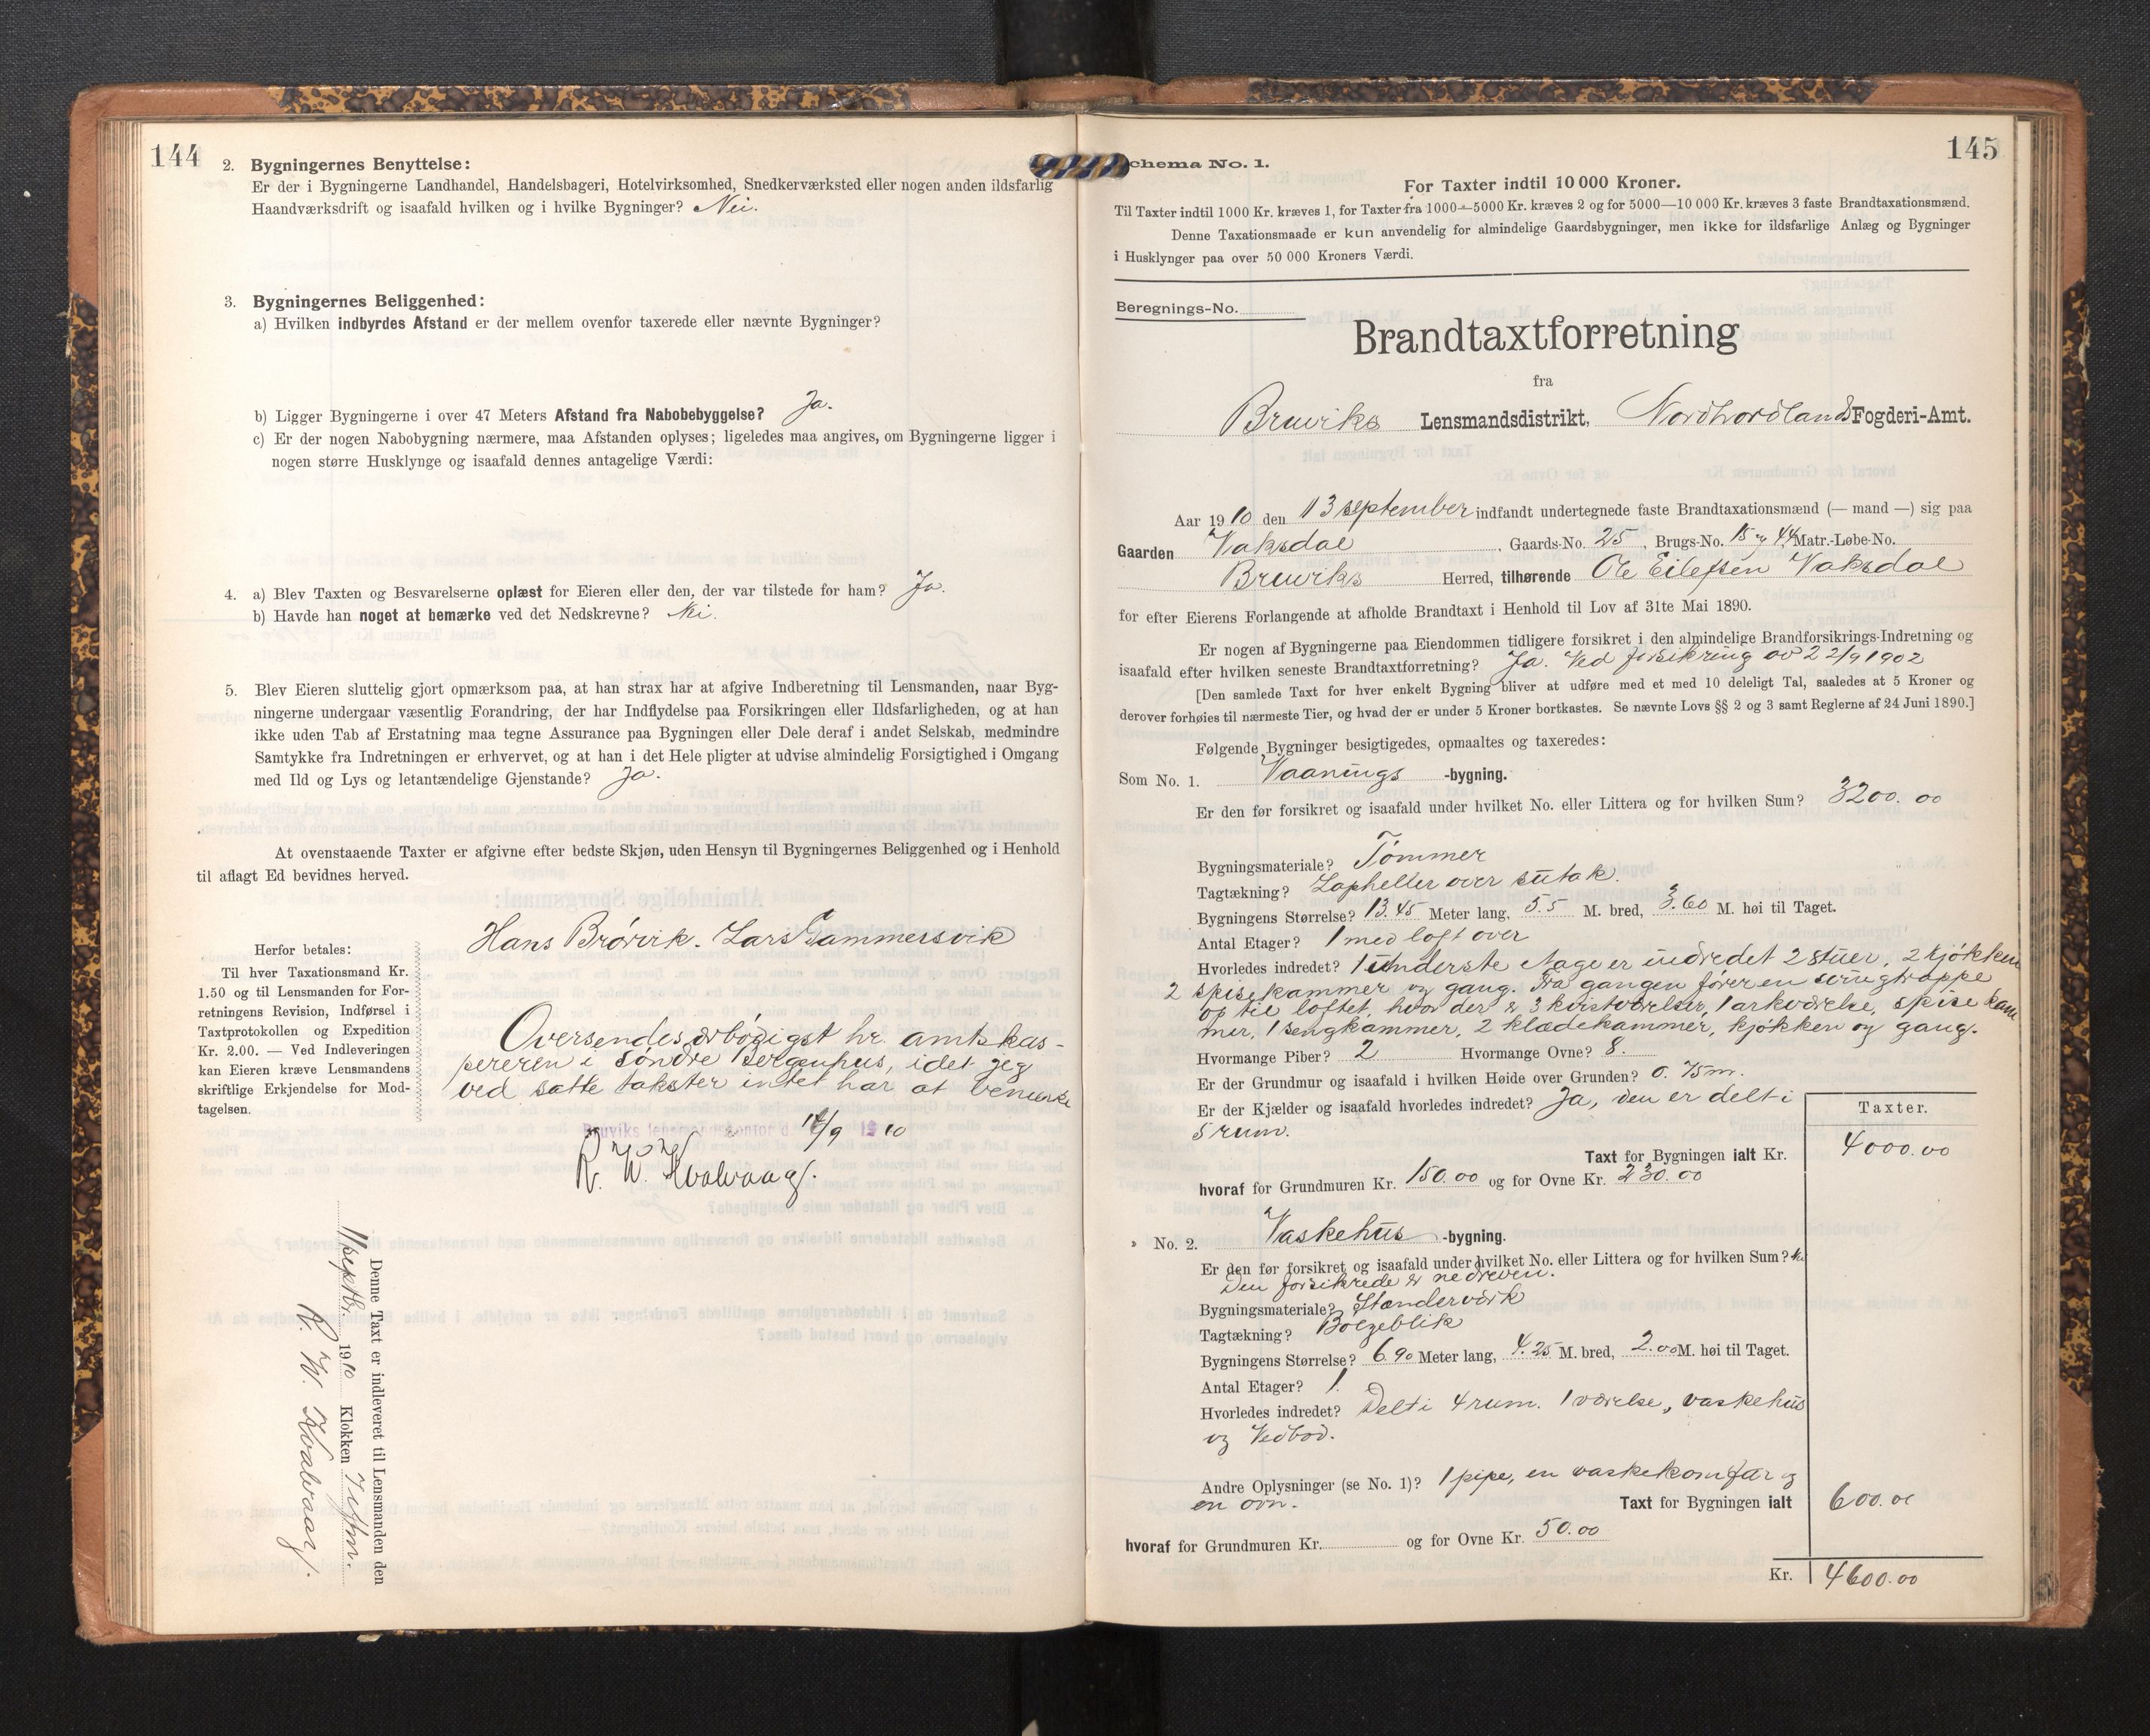 144
2. Bygningernes Benyttelse:
Er der i Bygningerne Landhandel, Handelsbageri, Hotelvirksomhed, Snedkerværksted eller nogen anden ildsfarlig
Haandværksdrift og isaafald hvilken og i hvilke Bygninger? Nei.
3. Bygningernes Beliggenhed:
a) Hvilken indbyrdes Afstand er der mellem ovenfor taxerede eller nævnte Bygninger?
b) Ligger Bygningerne i over 47 Meters Afstand fra Nabobebyggelse? Ja.
c) Er der nogen Nabobygning nærmere, maa Afstanden oplyses; ligeledes maa angives, om Bygningerne ligger i
nogen større Husklynge og isaafald dennes antagelige Værdi:
4. a) Blev Taxten og Besvarelserne oplæst for Eieren eller den, der var tilstede for ham? Ja.
b) Havde han noget at bemærke ved det Nedskrevne? Nei.
5. Blev Eieren sluttelig gjort opmærksom paa, at han strax har at afgive Indberetning til Lensmanden, naar Byg-
ningerne undergaar væsentlig Forandring, der har Indflydelse paa Forsikringen eller Ildsfarligheden, og at han
ikke uden Tab af Erstatning maa tegne Assurance paa Bygningen eller Dele deraf i andet Selskab, medmindre
Samtykke fra Indretningen er erhvervet, og at han i det Hele pligter at udvise almindelig Forsigtighed i Omgang
med Ild og Lys og letantændelige Gjenstande? Ja.
At ovenstaaende Taxter er afgivne efter bedste Skjøn, uden Hensyn til Bygningernes Beliggenhed og i Henhold
til aflagt Ed bevidnes herved.
Hans Brørvik. Lars Gammersvik
Herfor betales:
Til hver Taxationsmand Kr.
1.50 og til Lensmanden for For-
retningens Revision, Indførsel i
Taxtprotokollen og Expedition
Kr. 2.00. — Ved Indleveringen
kan Eieren kræve Lensmandens
skriftlige Erkjendelse for Mod-
tagelsen.
Oversendes ærbødigst hr. amtskas-
sereren i søndre Bergenhus, idet jeg
ved satte takster intet har at bemerke
Bruviks lensmandskontor d. /9 1910
R. W. Kvalvaag.
Denne Taxt er indleveret til Lensmanden den
11 septbr. 1910 Klokken 7 eftm.
R. W. Kvalvaag.
145
chema No. 1.
For Taxter indtil 10 000 Kroner.
Til Taxter indtil 1000 Kr. kræves 1, for Taxter fra 1000—5000 Kr. kræves 2 og for 5000—10 000 Kr. kræves 3 faste Brandtaxationsmænd.
Denne Taxationsmaade er kun anvendelig for almindelige Gaardsbygninger, men ikke for ildsfarlige Anlæg og Bygninger
i Husklynger paa over 50 000 Kroners Værdi.
Beregnings-No.
Brandtaxtforretning
fra
Bruviks Lensmandsdistrikt, Nordhordlands Fogderi-Amt.
Aar 1910 den 13 september indfandt undertegnede faste Brandtaxationsmænd (— mand —) sig paa
Gaarden Vaksdal, Gaards-No. 25, Brugs-No. 15 og 44, Matr.-Løbe-No.
Bruviks Herred, tilhørende Ole Eilefsen Vaksdal
for efter Eierens Forlangende at afholde Brandtaxt i Henhold til Lov af 31te Mai 1890.
Er nogen af Bygningerne paa Eiendommen tidligere forsikret i den almindelige Brandforsikrings-Indretning og
isaafald efter hvilken seneste Brandtaxtforretning? Ja. Ved forsikring av 22/9 1902
[Den samlede Taxt for hver enkelt Bygning bliver at udføre med et med 10 deleligt Tal, saaledes at 5 Kroner og
derover forhøies til nærmeste Tier, og hvad der er under 5 Kroner bortkastes. Se nævnte Lovs §§ 2 og 3 samt Reglerne af 24 Juni 1890.]
Følgende Bygninger besigtigedes, opmaaltes og taxeredes:
Som No. 1. Vaanings -bygning.
Er den før forsikret og isaafald under hvilket No. eller Littera og for hvilken Sum? 3200.00
Bygningsmateriale? Tømmer
Tagtækning? Lapheller over sutak.
Bygningens Størrelse? 13.45 Meter lang, 5.5 M. bred, 3.60 M. høi til Taget.
Antal Etager? 1 med loft over
Hvorledes indredet? I underste etage er indredet 2 stuer, 2 kjøkken
2 spisekammer og gang. Fra gangen fører en svingtrappe
op til loftet, hvor der er 3 kvistværelser, 1 arkværelse, spisekam
mer, 1 sengkammer, 2 klædekammer, kjøkken og gang.
Hvormange Piber? 2 Hvormange Ovne? 8.
Er der Grundmur og isaafald i hvilken Høide over Grunden? 0.75 m.
Er der Kjælder og isaafald hvorledes indredet? Ja, den er delt i
5 rum.
Taxter.
Taxt for Bygningen ialt Kr. 4000.00
hvoraf for Grundmuren Kr. 150.00 og for Ovne Kr. 230.00
» No. 2. Vaskehus -bygning.
Er den før forsikret og isaafald under hvilket No. eller Littera og for hvilken Sum? Nei
Den forsikrede er nedreven.
Bygningsmateriale? Standerverk
Tagtækning? Bølgeblik
Bygningens Størrelse? 6.90 Meter lang, 4.25 M. bred, 2.00 M. høi til Taget.
Antal Etager? 1.
Hvorledes indredet? Delt i 4 rum. 1 værelse, vaskehus
og Vedbod.
Andre Oplysninger (se No. 1)? 1 pipe, en vaskekomfur og
en ovn.
Taxt for Bygningen ialt 600.00
hvoraf for Grundmuren Kr. og for Ovne Kr. 50.00
Kr. 4600.00